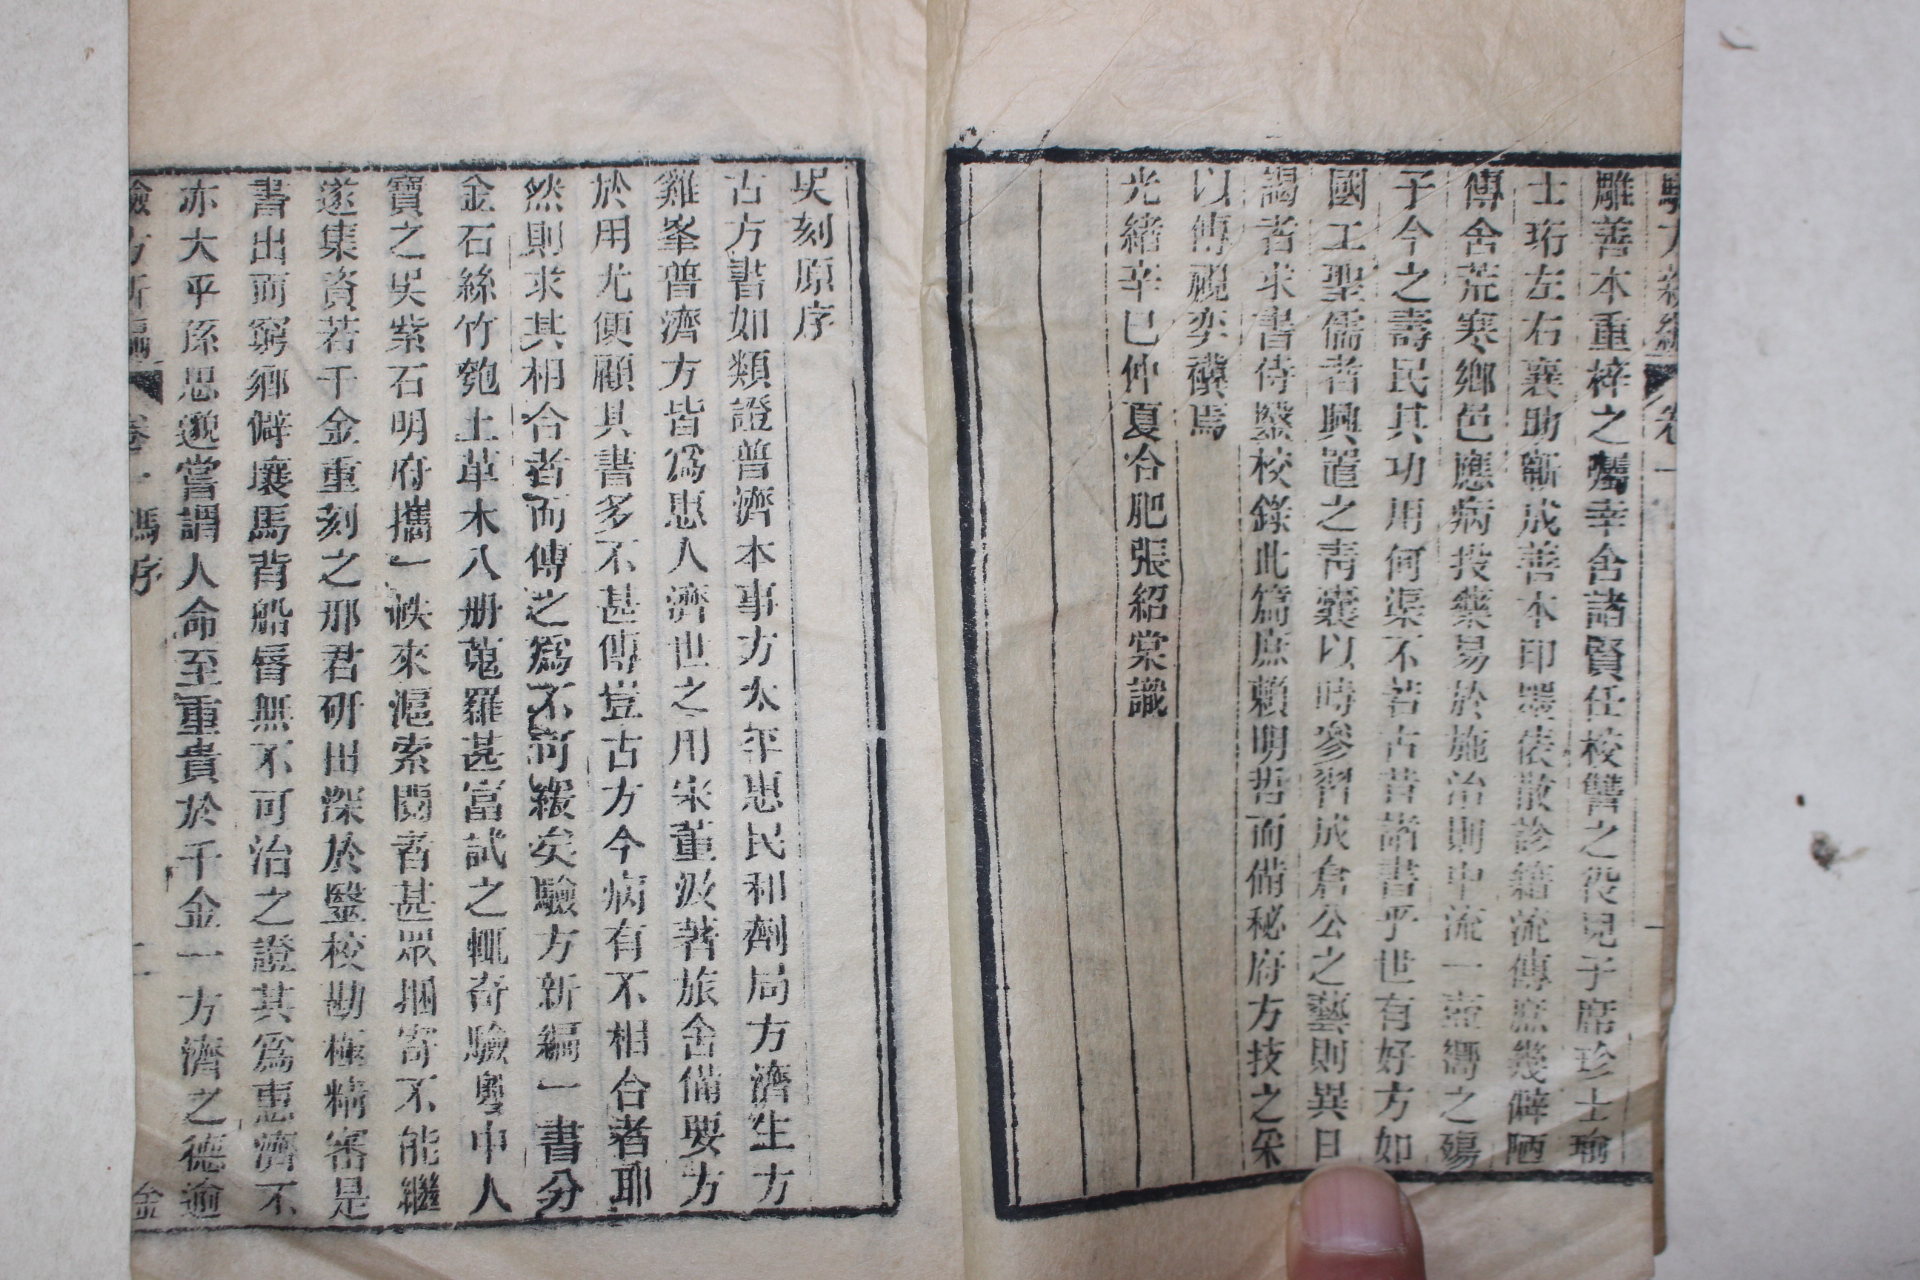 驗方新編 卷一
雕善本重梓之囑幸舍諸賢任校讐之役兒子席珍士瑜
士珩左右襄助蘄成善本印墨俵散診籍流傳庶幾僻陋
傳舍荒寒鄉邑應病投藥易於施治則中流一壺嚮之殤
子今之壽民其功用何渠不若古昔諸書乎世有好方如
國工聖儒者興置之靑囊以時參習成倉公之藝則異日
謁者求書侍毉校錄此篇庶賴明哲而備秘府方技之采
以傳視奕禩焉
光緒辛巳仲夏合肥張紹棠識
吳刻原序
古方書如類證普濟本事方太平惠民和劑局方濟生方
雞峯普濟方皆爲惠人濟世之用宋董汲著旅舍備要方
於用尤便顧其書多不甚傳豈古方今病有不相合者耶
然則求其相合者而傳之爲不可緩矣驗方新編一書分
金石絲竹匏土革木八册蒐羅甚富試之輒奇驗粵中人
寶之吳紫石明府攜一帙來滬索閱者甚眾捆寄不能繼
遂集資若干金重刻之那君研田深於毉校勘極精審是
書出而窮鄉僻壤馬背船唇無不可治之證其爲惠濟不
亦大乎孫思邈嘗謂人命至重貴於千金一方濟之德逾
驗方新編 卷一 馮序 二